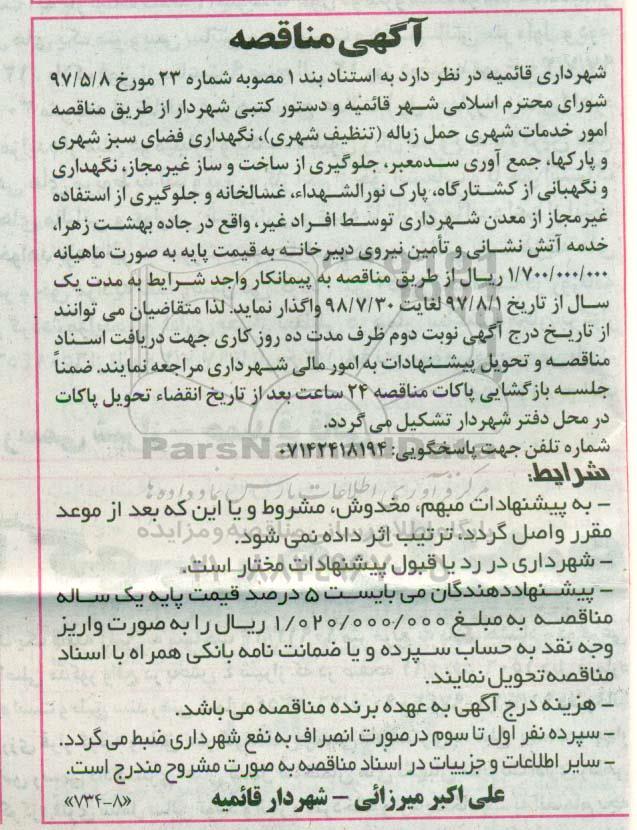 آگهی مناقصه
شهرداری قائمیه در نظر دارد به استناد بند ۱ مصوبه شماره ۲۳ مورخ ۹۷/۵/۸
شورای محترم اسلامی شهر قائمیه و دستور کتبی شهردار از طریق مناقصه
امور خدمات شهری حمل زباله (تنظیف شهری)، نگهداری فضای سبز شهری
و پارکها، جمع آوری سدمعبر، جلوگیری از ساخت و ساز غیرمجاز، نگهداری
و نگهبانی از کشتارگاه، پارک نورالشهداء، غسالخانه و جلوگیری از استفاده
غیرمجاز از معدن شهرداری توسط افراد غیر، واقع در جاده بهشت زهرا،
خدمه آتش نشانی و تأمین نیروی دبیرخانه به قیمت پایه به صورت ماهیانه
۱/۷۰۰/۰۰۰/۰۰۰ ریال از طریق مناقصه به پیمانکار واجد شرایط به مدت یک
سال از تاریخ ۹۷/۸/۱ لغایت ۹۸/۷/۳۰ واگذار نماید. لذا متقاضیان می توانند
از تاریخ درج آگهی نوبت دوم ظرف مدت ده روز کاری جهت دریافت اسناد
مناقصه و تحویل پیشنهادات به امور مالی شهرداری مراجعه نمایند. ضمناً
جلسه بازگشایی پاکات مناقصه ۲۴ ساعت بعد از تاریخ انقضاء تحویل پاکات
در محل دفتر شهردار تشکیل می گردد.
شماره تلفن جهت پاسخگویی: ۰۷۱۴۲۴۱۸۱۹۴
ParsNamadData
شرایط:
– به پیشنهادات مبهم، مخدوش، مشروط و یا این که بعد از موعد
مقرر واصل گردد، ترتیب اثر داده نمی شود.
– شهرداری در رد یا قبول پیشنهادات مختار است.
– پیشنهاددهندگان می بایست ۵ درصد قیمت پایه یک ساله
مناقصه به مبلغ ۱/۰۲۰/۰۰۰/۰۰۰ ریال را به صورت واریز
وجه نقد به حساب سپرده و یا ضمانت نامه بانکی همراه با اسناد
مناقصه تحویل نمایند.
– هزینه درج آگهی به عهده برنده مناقصه می باشد.
– سپرده نفر اول تا سوم در صورت انصراف به نفع شهرداری ضبط می گردد.
– سایر اطلاعات و جزییات در اسناد مناقصه به صورت مشروح مندرج است.
علی اکبر میرزائی – شهردار قائمیه
«۷۳۴-۸»